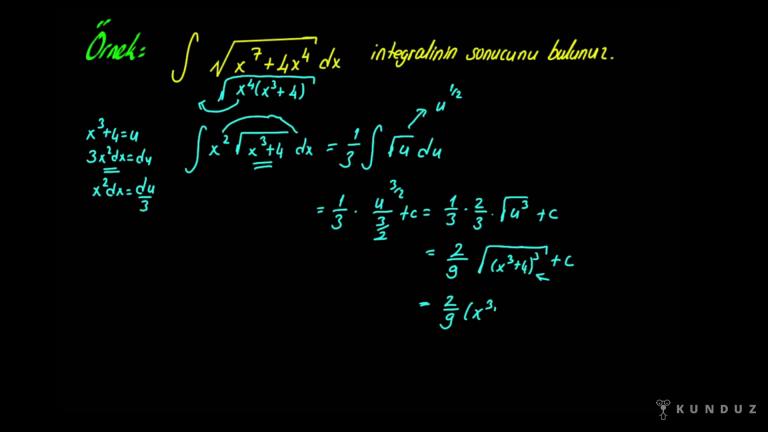 Örnek: ∫ √(x⁷+4x⁴) dx integralinin sonucunu bulunuz.
√(x⁴(x³+4))
u^(1/2)
x³+4=u
3x²dx=du
x²dx=du/3
∫ x² √(x³+4) dx = 1/3 ∫ √u du
= 1/3 · u^(3/2)/(3/2) +c = 1/3 · 2/3 · √u³ +c
= 2/9 √((x³+4)³) +c
= 2/9 (x³
KUNDUZ